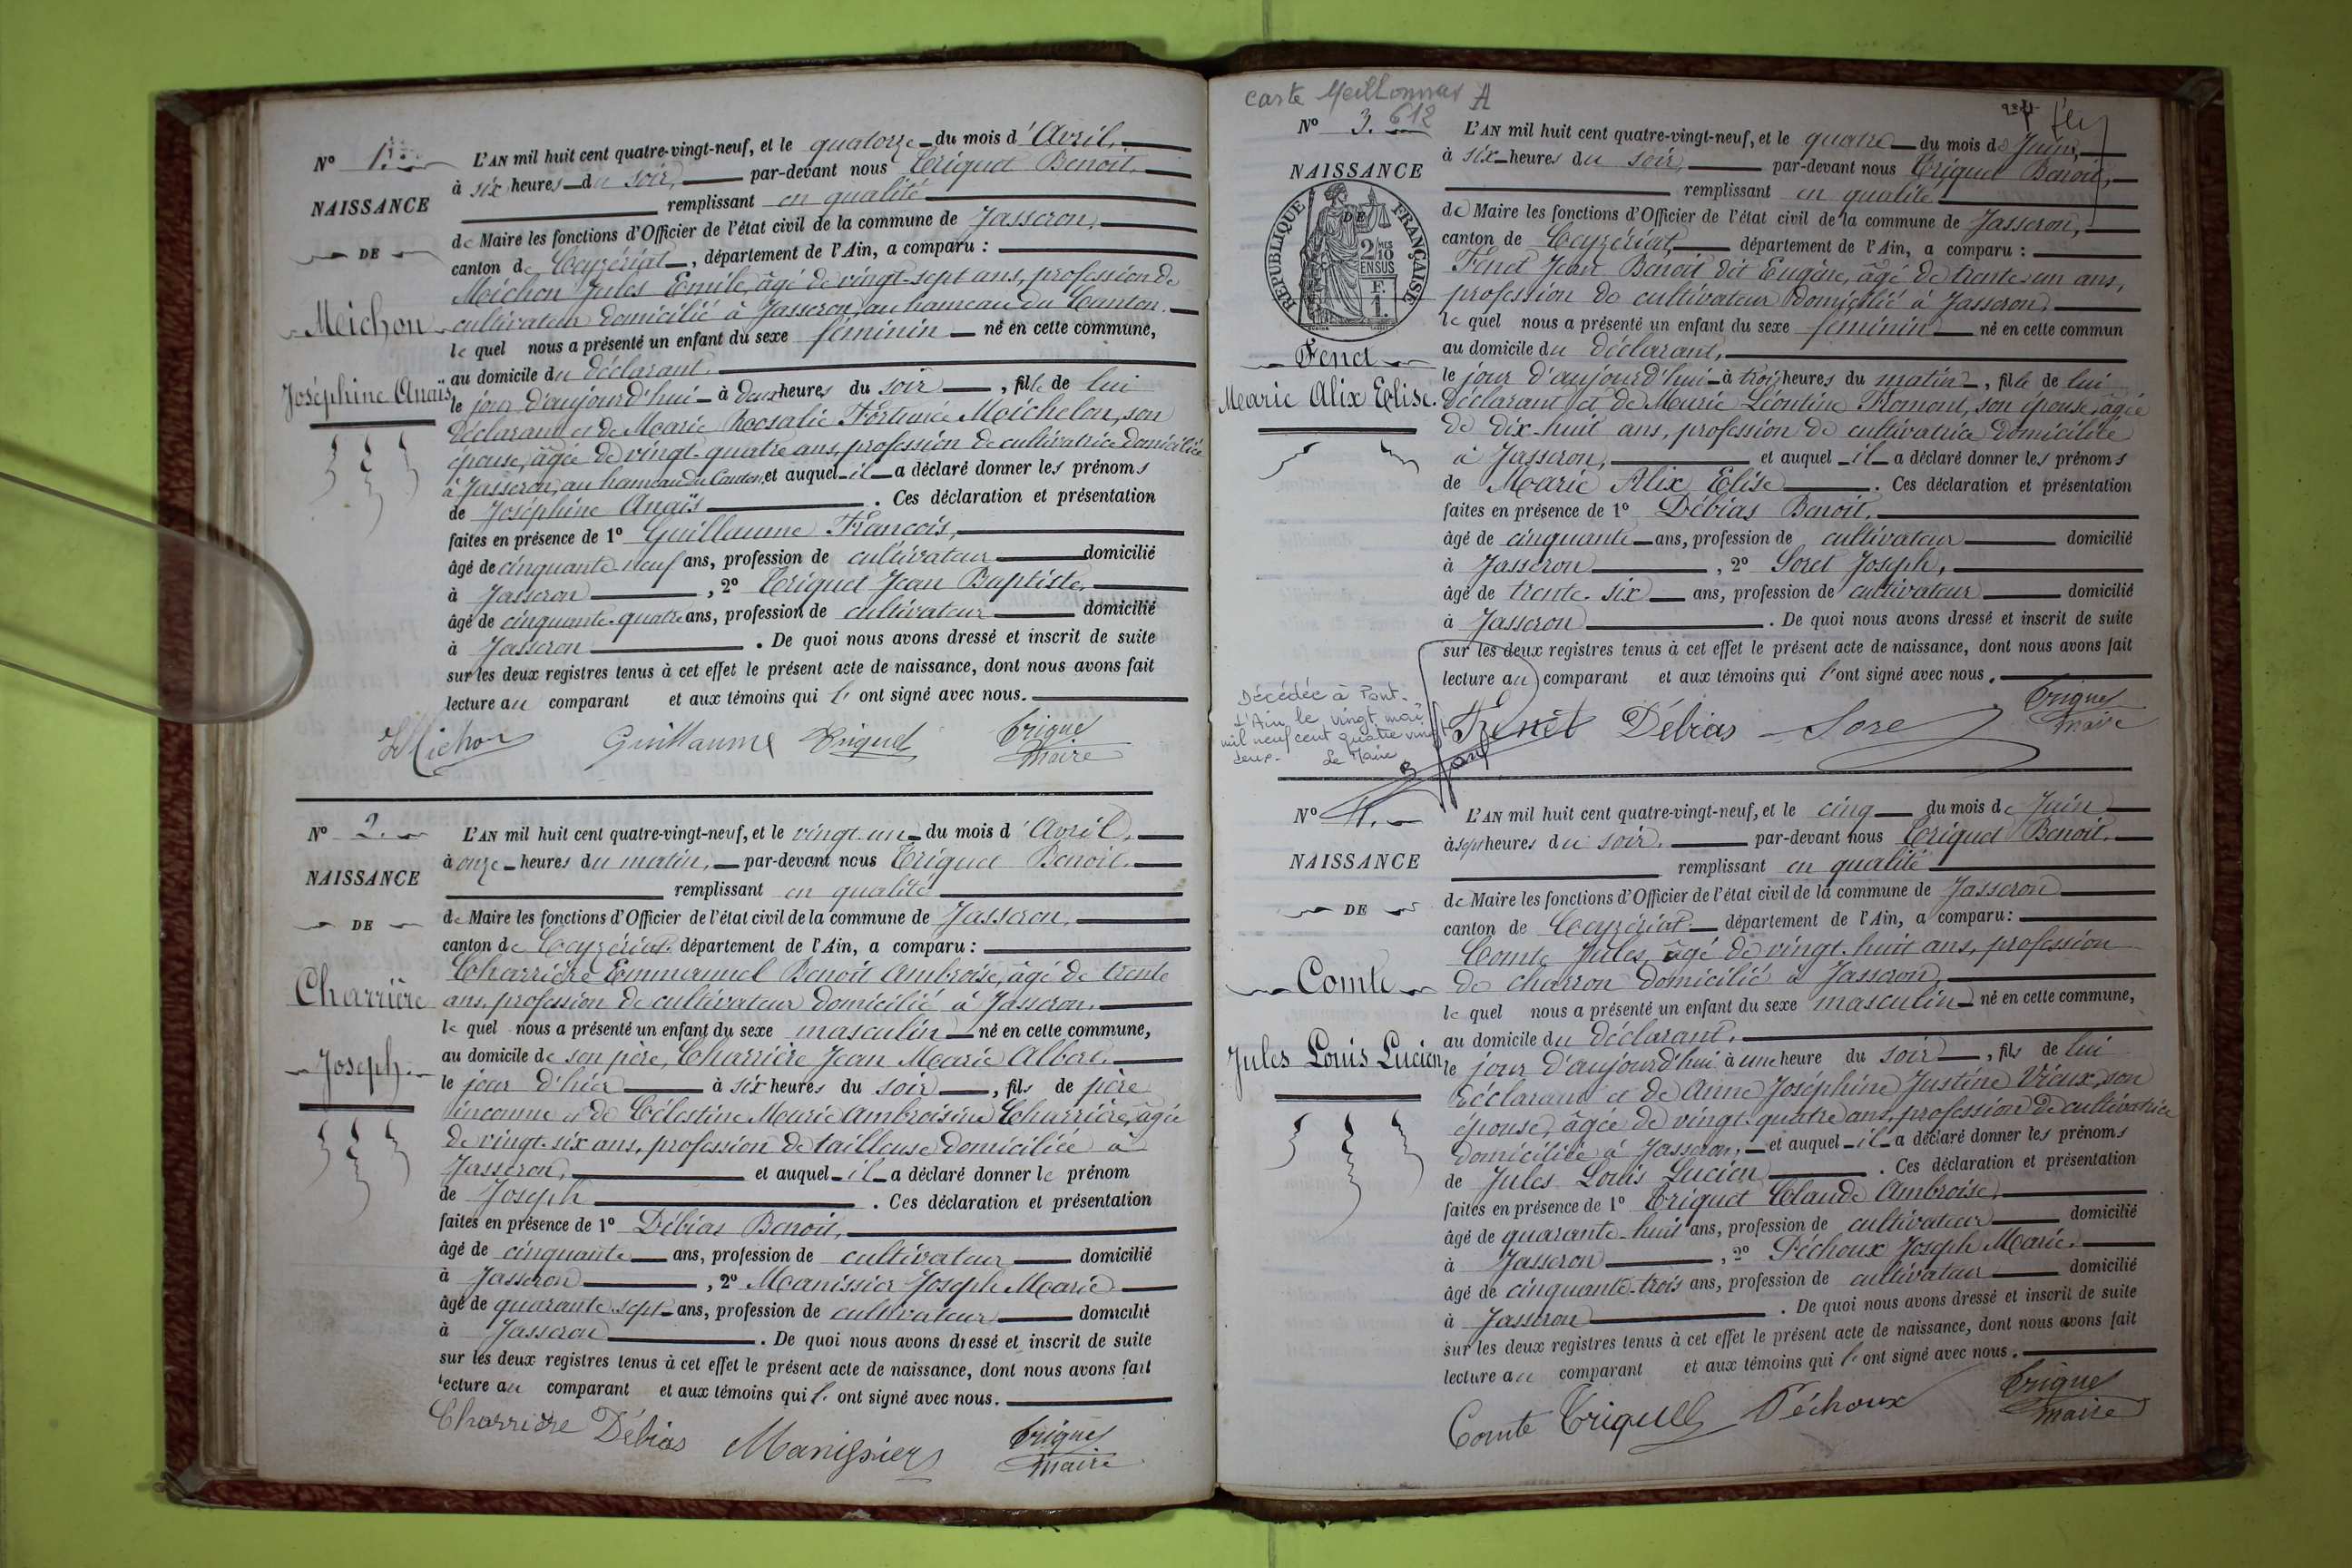 Nº 1.
NAISSANCE
DE
Meichon
Joséphine Anaïs
L'AN mil huit cent quatre-vingt-neuf, et le quatorze du mois d'Avril,
à six heures du soir, par-devant nous Triquet Benoit,
remplissant en qualité
de Maire les fonctions d'Officier de l'état civil de la commune de Jasseron,
canton de Ceyzériat, département de l'Ain, a comparu :
Meichon Jules Emile, âgé de vingt-sept ans, profession de
cultivateur domicilié à Jasseron, au hameau du Canton.
lequel nous a présenté un enfant du sexe féminin né en cette commune,
au domicile du déclarant.
le jour d'aujourd'hui à deux heures du soir, fille de lui
déclarant et de Marie Rosalie Fortunée Meichelon, son
épouse, âgée de vingt-quatre ans, profession de cultivatrice domiciliée
à Jasseron, au hameau du Canton, et auquel il a déclaré donner les prénoms
de Joséphine Anaïs. Ces déclaration et présentation
faites en présence de 1º Guillaume François,
âgé de cinquante-neuf ans, profession de cultivateur domicilié
à Jasseron, 2º Triquet Jean Baptiste,
âgé de cinquante-quatre ans, profession de cultivateur domicilié
à Jasseron. De quoi nous avons dressé et inscrit de suite
sur les deux registres tenus à cet effet le présent acte de naissance, dont nous avons fait
lecture au comparant et aux témoins qui l'ont signé avec nous.
Guillaume Triquet Triquet
maire
Nº 2.
NAISSANCE
DE
Charrière
Joseph.
L'AN mil huit cent quatre-vingt-neuf, et le vingt-un du mois d'Avril,
à onze heures du matin, par-devant nous Triquet Benoit.
remplissant en qualité
de Maire les fonctions d'Officier de l'état civil de la commune de Jasseron,
canton de Ceyzériat département de l'Ain, a comparu :
Charrière Emmanuel Benoit Ambroise, âgé de trente
ans, profession de cultivateur domicilié à Jasseron.
lequel nous a présenté un enfant du sexe masculin né en cette commune,
au domicile de son père, Charrière Jean Marie Albert.
le jour d'hier à six heures du soir, fils de père
inconnu et de Célestine Marie Ambroisine Charrière, âgée
de vingt-six ans, profession de tailleuse domiciliée à
Jasseron, et auquel il a déclaré donner le prénom
de Joseph. Ces déclaration et présentation
faites en présence de 1º Débias Benoit,
âgé de cinquante ans, profession de cultivateur domicilié
à Jasseron, 2º Manissier Joseph Marie
âgé de quarante-sept ans, profession de cultivateur domicilié
à Jasseron. De quoi nous avons dressé et inscrit de suite
sur les deux registres tenus à cet effet le présent acte de naissance, dont nous avons fait
lecture au comparant et aux témoins qui l'ont signé avec nous.
Charrière Débias Manissier Triquet
maire
carte Meillonnas A
612
Nº 3.
NAISSANCE
RÉPUBLIQUE FRANÇAISE
DE
2/10 MES
EN SUS
F.
1.
Fenet
Marie Alix Elise.
L'AN mil huit cent quatre-vingt-neuf, et le quatre du mois de Juin,
à six heures du soir, par-devant nous Triquet Benoit,
remplissant en qualité
de Maire les fonctions d'Officier de l'état civil de la commune de Jasseron,
canton de Ceyzériat, département de l'Ain, a comparu :
Fenet Jean Benoit dit Eugène, âgé de trente-un ans,
profession de cultivateur domicilié à Jasseron,
lequel nous a présenté un enfant du sexe féminin né en cette commun
au domicile du déclarant,
le jour d'aujourd'hui à trois heures du matin, fille de lui
déclarant et de Marie Léontine Flomont, son épouse, âgée
de dix-huit ans, profession de cultivatrice domiciliée
à Jasseron, et auquel il a déclaré donner les prénoms
de Marie Alix Elise. Ces déclaration et présentation
faites en présence de 1º Débias Benoit,
âgé de cinquante ans, profession de cultivateur domicilié
à Jasseron, 2º Soret Joseph,
âgé de trente-six ans, profession de cultivateur domicilié
à Jasseron. De quoi nous avons dressé et inscrit de suite
sur les deux registres tenus à cet effet le présent acte de naissance, dont nous avons fait
lecture au comparant et aux témoins qui l'ont signé avec nous.
Décédée à Pont-
d'Ain le vingt mai
mil neuf cent quatre vingt
deux.
Le Maire
Fenet Débias Sore Triquet
maire
Nº 4.
NAISSANCE
DE
Comte
Jules Louis Lucien
L'AN mil huit cent quatre-vingt-neuf, et le cinq du mois de Juin
à sept heures du soir. par-devant nous Triquet Benoit.
remplissant en qualité
de Maire les fonctions d'Officier de l'état civil de la commune de Jasseron
canton de Ceyzériat. département de l'Ain, a comparu :
Comte Jules, âgé de vingt-huit ans, profession
de charron domicilié à Jasseron,
lequel nous a présenté un enfant du sexe masculin né en cette commune,
au domicile du déclarant.
le jour d'aujourd'hui à une heure du soir, fils de lui
déclarant et de Anne Joséphine Justine Vieux, son
épouse, âgée de vingt-quatre ans, profession de cultivatrice
domiciliée à Jasseron, et auquel il a déclaré donner les prénoms
de Jules Louis Lucien. Ces déclaration et présentation
faites en présence de 1º Triquet Claude Ambroise,
âgé de quarante-huit ans, profession de cultivateur domicilié
à Jasseron, 2º Péchoux Joseph Marie.
âgé de cinquante-trois ans, profession de cultivateur domicilié
à Jasseron. De quoi nous avons dressé et inscrit de suite
sur les deux registres tenus à cet effet le présent acte de naissance, dont nous avons fait
lecture au comparant et aux témoins qui l'ont signé avec nous.
Comte Triquet Péchoux Triquet
maire